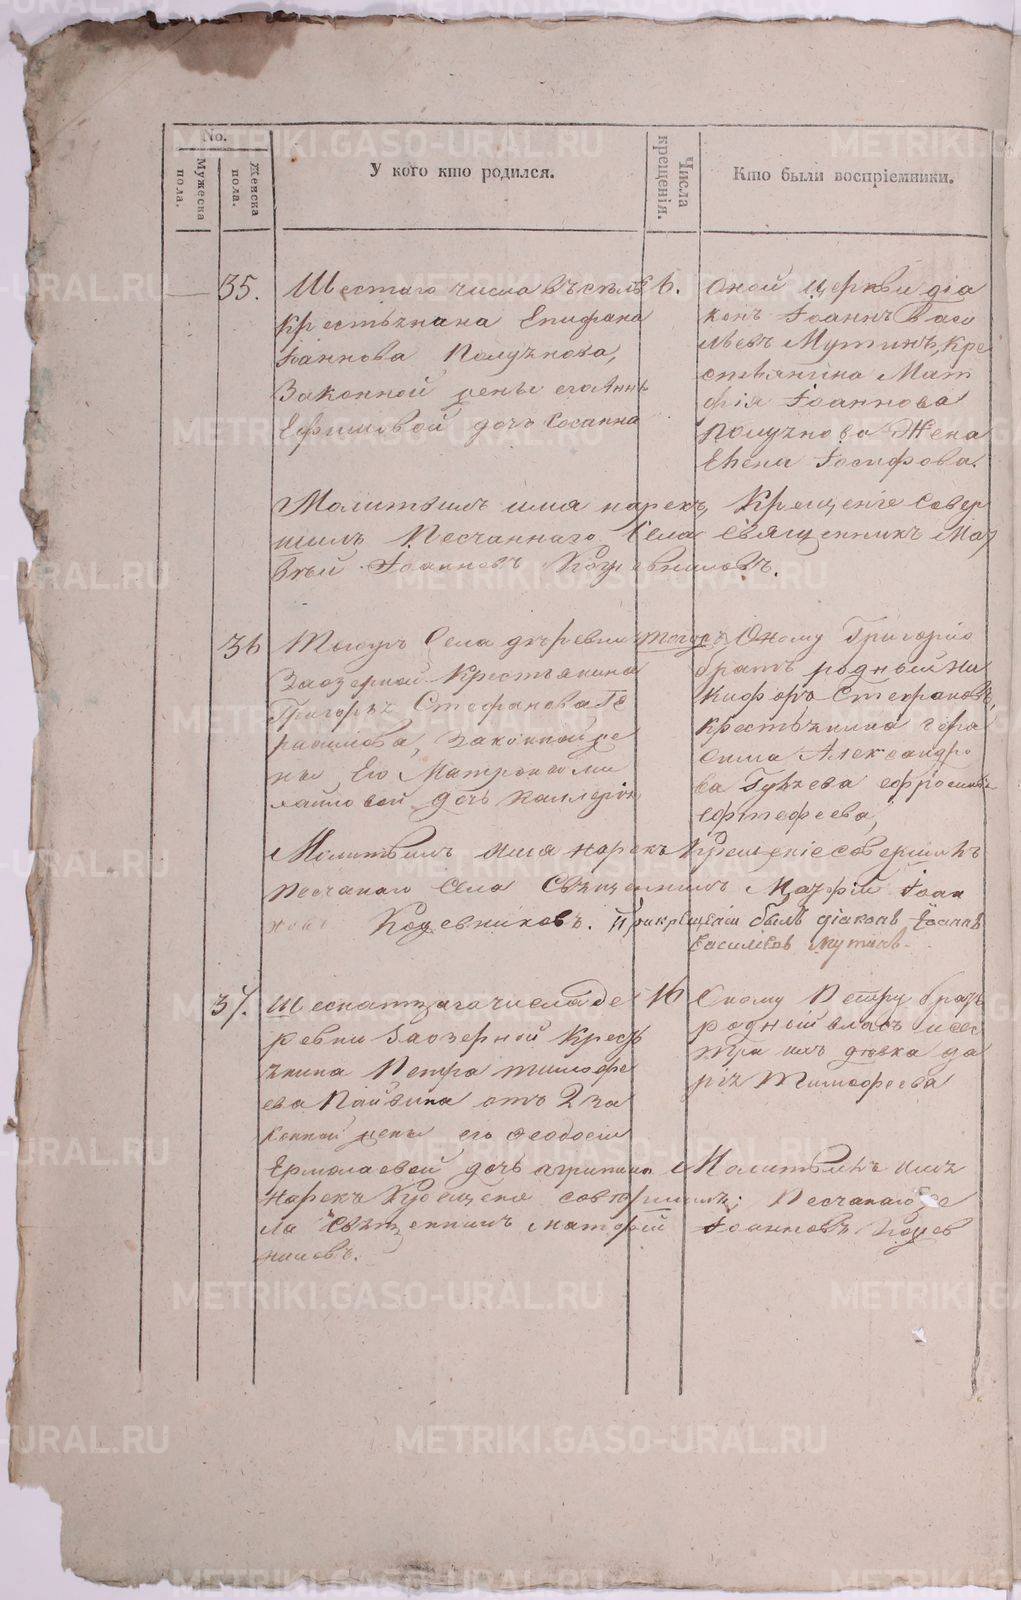 No.
Мужеска пола.
Женска пола.
У кого кто родился.
Числа крещенія.
Кто были воспріемники.
35.
Шестаго числа въ селѣ
Крестьянина Епифана
Іоаннова Полуянова,
Законной жены его Анны
Ефимовой дочь Сосанна
6.
Оной церкви діа
конъ Іоаннъ Васи
льевъ Мутинъ, Кре
стьянина Мат
фія Іоаннова
Полуянова Жена
Елена Іосифова.
Молитвилъ имя нарекъ, Крещеніе совер
шилъ Песчаннаго Села священникъ Мат
вѣй Іоанновъ Кожевниковъ.
36
Тогожъ Села деревни
Заозерной Крестьянина
Григорья Стефанова Ге
расимова, Законной же
ны Его Матроны Ми
хайловой дочь
тогожъ
Оному Григорію
братъ родный Ни
кифоръ Стефановъ,
крестьянина Гера
сима Александро
ва жена Ефросинья
Молитвилъ имя нарекъ Крещеніе совершилъ
Песчанаго Села Священникъ Матфій Іоан
новъ Кожевниковъ. При крещеніи былъ діаконъ Іоаннъ
Василіевъ Мутинъ.
37.
Шеснатцаго числа де
ревни Заозерной Крест
янина Петра Тимофе
ева Пайвина отъ 2 за
конной жены его Феодосіи
Ермолаевой дочь Агрипина
16
Оному Петру братъ
родный Власъ и сес
тра ихъ девка Да
рія Тимофеева
Молитвилъ имя
нарекъ Крещеніе совершилъ: Песчанаго Се
ла Священникъ Матфій Іоанновъ Кожев
никовъ.
METRIKI.GASO-URAL.RU